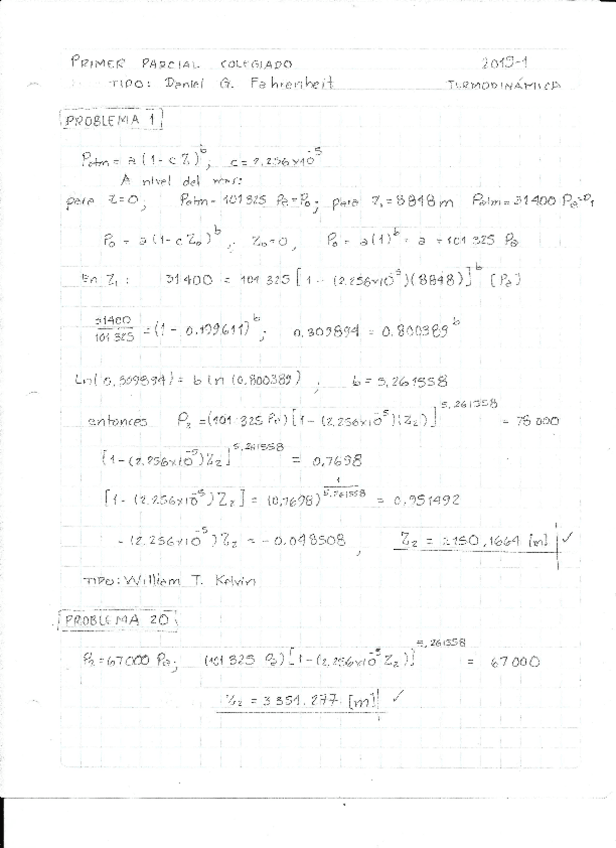 PRIMER PARCIAL COLEGIADO 2019-1
TIPO: Daniel G. Fahrenheit TERMODINÁMICA
PROBLEMA 1
Patm = a (1 - c Z)^b ; c = 2.256x10^-5
A nivel del mar:
para Z=0, Patm = 101 325 Pa = P₀ ; para Z₁ = 8848 m Patm = 31400 Pa = P₁
P₀ = a (1 - c Z₀)^b ; Z₀ = 0, P₀ = a (1)^b = a = 101 325 Pa
En Z₁ : 31400 = 101 325 [1 - (2.256x10^-5)(8848)]^b [Pa]
31400/101 325 = (1 - 0.199611)^b ; 0.309894 = 0.800389^b
Ln(0.309894) = b ln (0.800389) ; b = 5.261558
entonces P₂ = (101 325 Pa) [1 - (2.256x10^-5)(Z₂)]^5.261558 = 78 000
[1 - (2.256x10^-5) Z₂]^5.261558 = 0.7698
[1 - (2.256x10^-5) Z₂] = (0.7698)^(1/5.261558) = 0.951492
- (2.256x10^-5) Z₂ = - 0.048508 , Z₂ = 2150.1664 [m] ✓
TIPO: William T. Kelvin
PROBLEMA 20
P₂ = 67000 Pa ; (101 325 Pa) [1 - (2.256x10^-5 Z₂)]^5.261558 = 67 000
Z₂ = 3351.277 [m] ✓